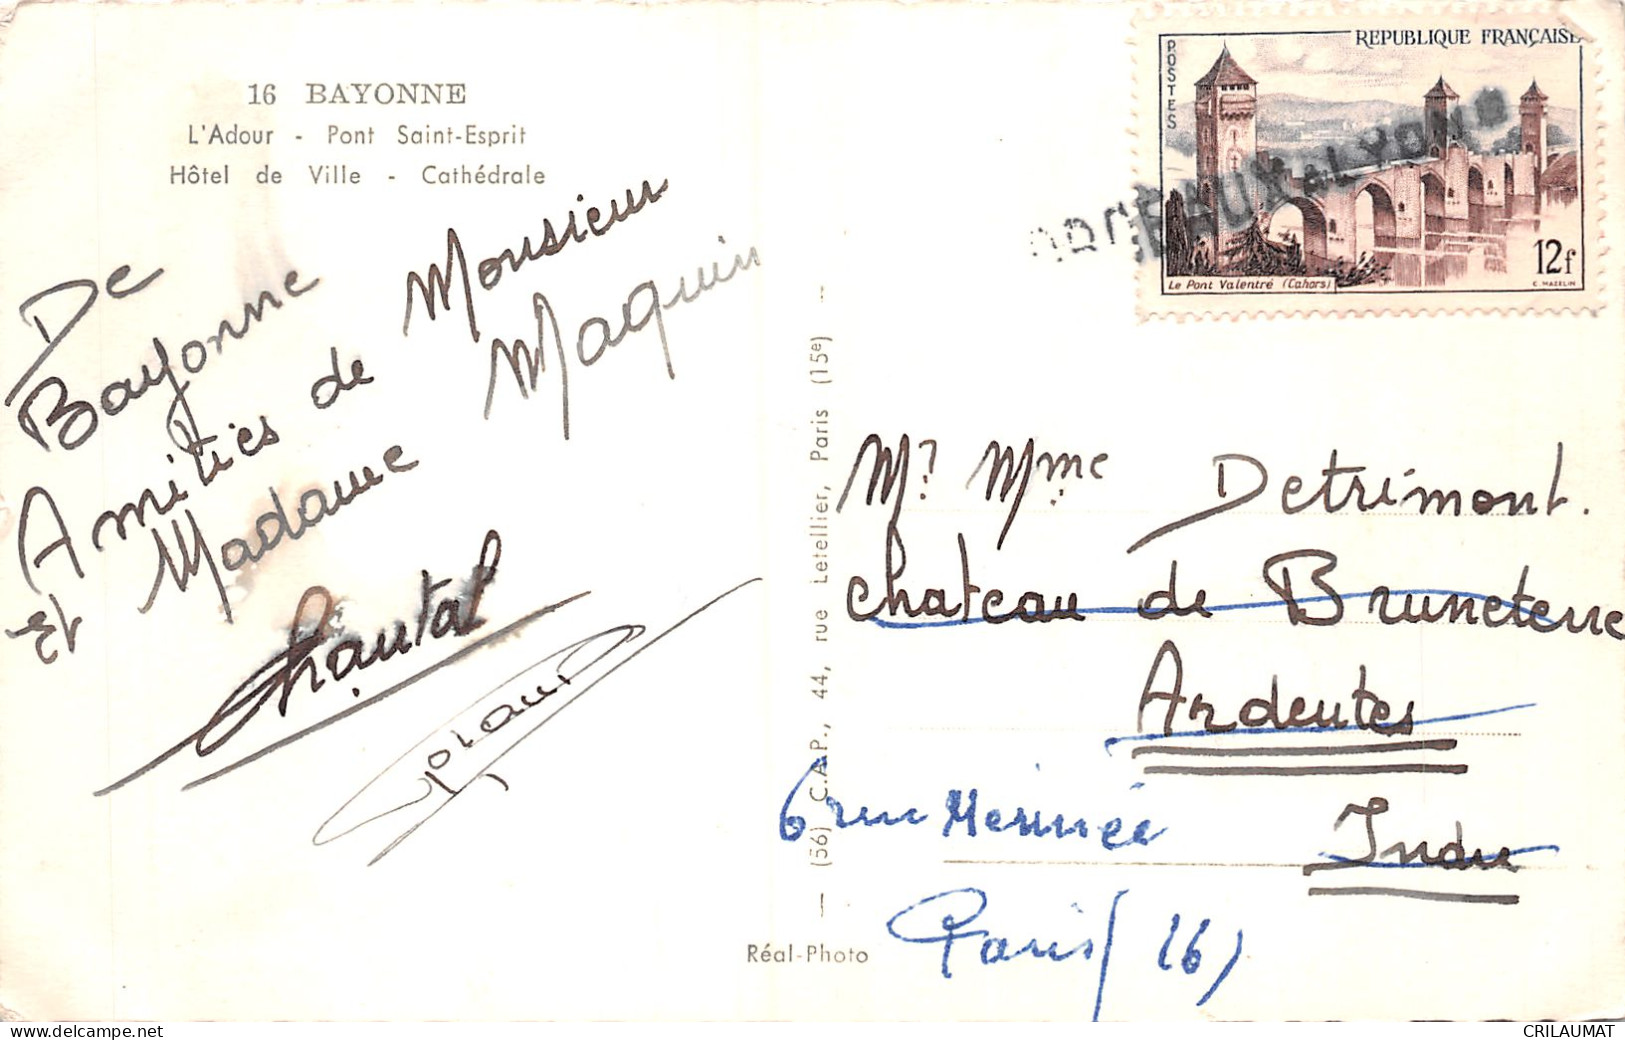 16 BAYONNE
L'Adour - Pont Saint-Esprit
Hôtel de Ville - Cathédrale
De
Bayonne
Amitiés de Monsieur
Et Madame Maquin
Chantal
(56) C.A.P., 44, rue Letellier, Paris (15e)
Réal-Photo
POSTES
REPUBLIQUE FRANÇAISE
12f
Le Pont Valentré (Cahors)
C. MAZELIN
Mr Mme Detrimont.
Chateau de Bruneterre
Ardentes
Indre
6 rue Mérimée
Paris (16)
CRILAUMAT